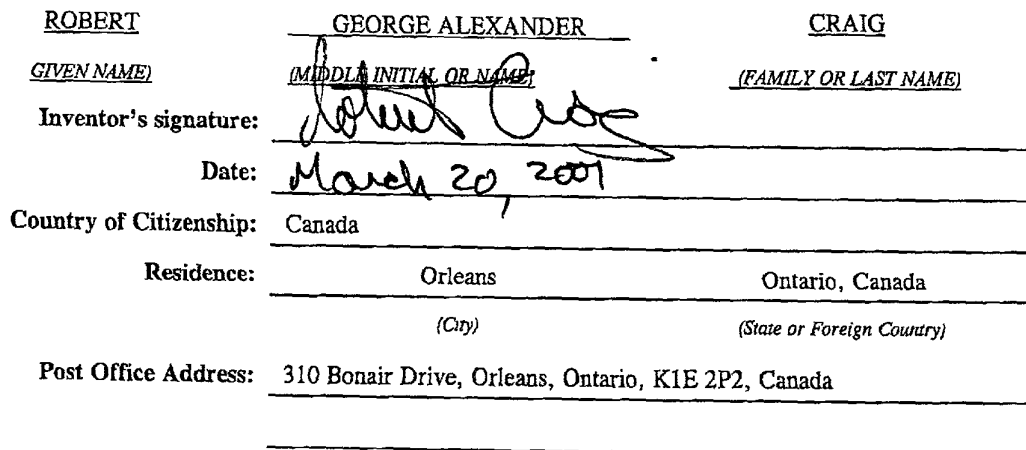 ROBERT GEORGE ALEXANDER CRAIG
GIVEN NAME) (MIDDLE INITIAL OR NAME) (FAMILY OR LAST NAME)
Inventor's signature: Robert Craig
Date: March 20, 2001
Country of Citizenship: Canada
Residence: Orleans Ontario, Canada
(City) (State or Foreign Country)
Post Office Address: 310 Bonair Drive, Orleans, Ontario, K1E 2P2, Canada